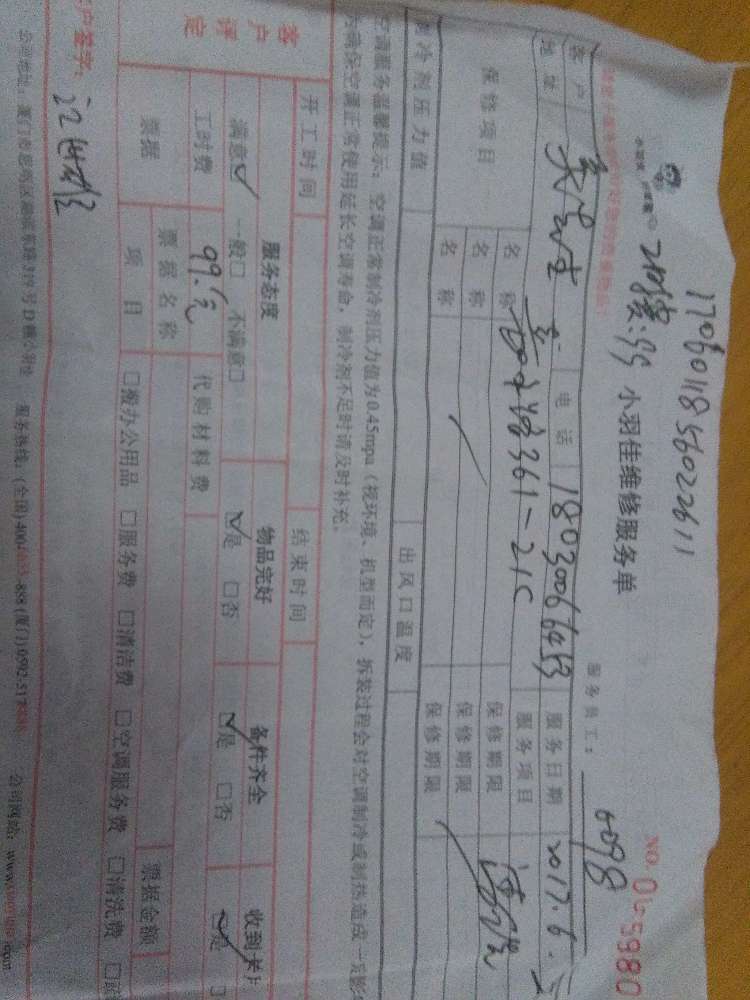 1706011856022611
小羽佳维修服务单
NO.
服务员工: 6098
客户
电话 18030066453
服务日期 2017.6.
地址
361-21C
服务项目
保修项目
名称
保修期限
名称
保修期限
名称
保修期限
制冷剂压力值
出风口温度
空调服务温馨提示: 空调正常制冷剂压力值为0.45mpa (视环境、机型而定), 拆装过程会对空调制冷或制热造成一定影
为确保空调正常使用延长空调寿命, 制冷剂不足时请及时补充。
开工时间
结束时间
客户评定
服务态度
物品完好
备件齐全
收到卡片
满意☑ 一般□ 不满意□
☑是 □否
☑是 □否
☑是
工时费 99.元
代购材料费
票据
票据名称
票据金额
项目
□报办公用品 □服务费 □清洁费 □空调服务费 □清洗费
客户签字:
公司地址: 厦门市思明区湖滨东路319号D栋小羽佳
服务热线: (全国)400
公司网站: www.